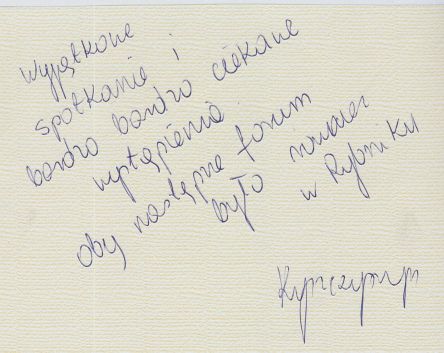 Wyjątkowe
spotkanie i
bardzo bardzo ciekawe
wystąpienia
oby następne forum
było również
w Rybniku